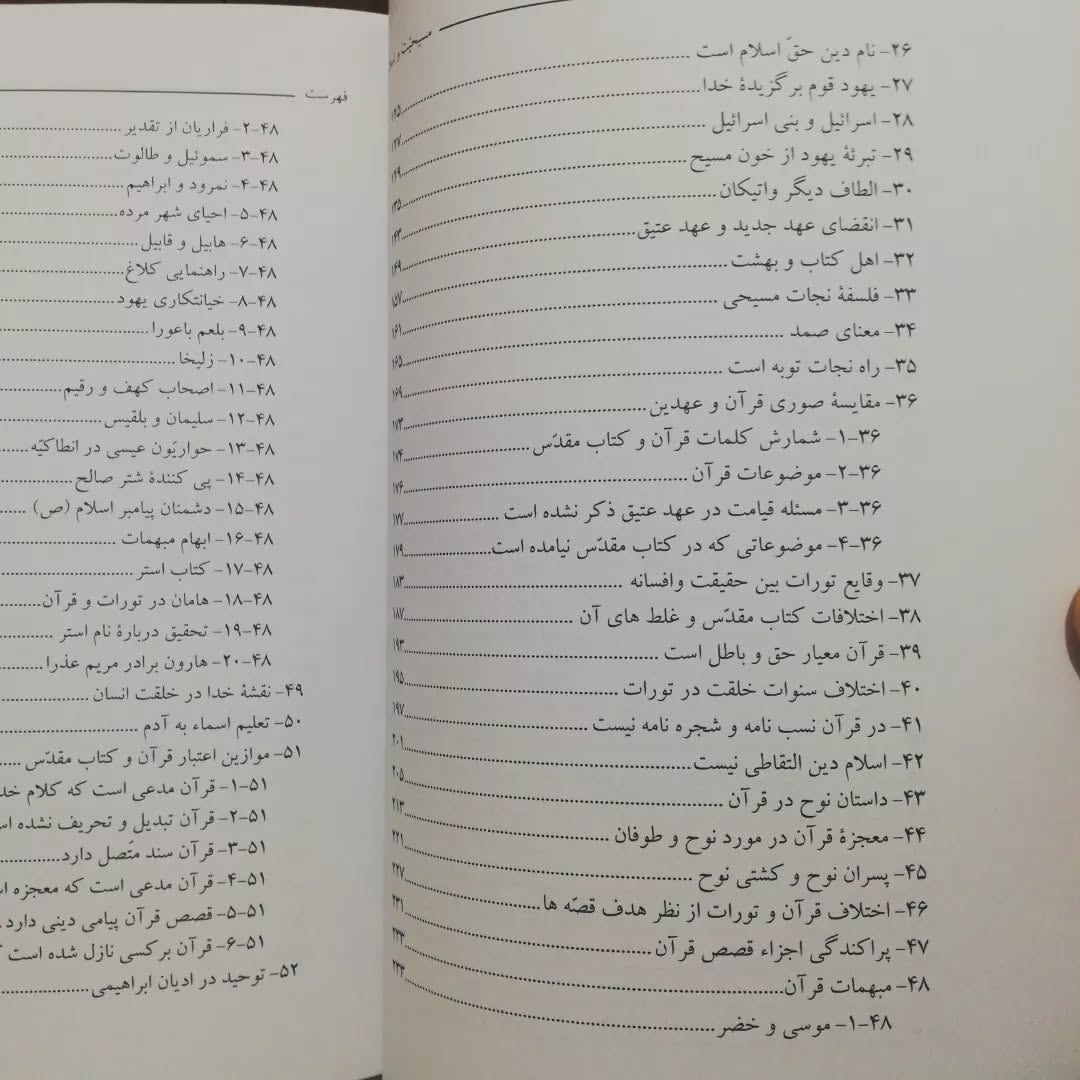 مسیحیت و
۲۶- نام دین حقّ اسلام است ........ ۱۲۵
۲۷- یهود قوم برگزیدۀ خدا ........ ۱۲۷
۲۸- اسرائیل و بنی اسرائیل ........ ۱۲۹
۲۹- تبرئۀ یهود از خون مسیح ........ ۱۳۵
۳۰- الطاف دیگر واتیکان ........ ۱۴۳
۳۱- انقضای عهد جدید و عهد عتیق ........ ۱۴۹
۳۲- اهل کتاب و بهشت ........ ۱۵۷
۳۳- فلسفۀ نجات مسیحی ........ ۱۶۱
۳۴- معنای صمد ........ ۱۶۵
۳۵- راه نجات توبه است ........ ۱۶۹
۳۶- مقایسۀ صوری قرآن و عهدین ........ ۱۷۳
۳۶-۱- شمارش کلمات قرآن و کتاب مقدّس ........ ۱۷۴
۳۶-۲- موضوعات قرآن ........ ۱۷۶
۳۶-۳- مسئله قیامت در عهد عتیق ذکر نشده است ........ ۱۷۷
۳۶-۴- موضوعاتی که در کتاب مقدّس نیامده است ........ ۱۷۹
۳۷- وقایع تورات بین حقیقت وافسانه ........ ۱۸۳
۳۸- اختلافات کتاب مقدّس و غلط های آن ........ ۱۸۷
۳۹- قرآن معیار حق و باطل است ........ ۱۹۳
۴۰- اختلاف سنوات خلقت در تورات ........ ۱۹۵
۴۱- در قرآن نسب نامه و شجره نامه نیست ........ ۱۹۷
۴۲- اسلام دین التقاطی نیست ........ ۲۰۱
۴۳- داستان نوح در قرآن ........ ۲۰۵
۴۴- معجزۀ قرآن در مورد نوح و طوفان ........ ۲۱۳
۴۵- پسران نوح و کشتی نوح ........ ۲۲۱
۴۶- اختلاف قرآن و تورات از نظر هدف قصّه ها ........ ۲۲۷
۴۷- پراکندگی اجزاء قصص قرآن ........ ۲۳۱
۴۸- مبهمات قرآن ........ ۲۳۳
۴۸-۱- موسی و خضر ........ ۲۳۴
فهرست
۴۸-۲- فراریان از تقدیر ........
۴۸-۳- سموئیل و طالوت ........
۴۸-۴- نمرود و ابراهیم ........
۴۸-۵- احیای شهر مرده ........
۴۸-۶- هابیل و قابیل ........
۴۸-۷- راهنمایی کلاغ ........
۴۸-۸- خیانتکاری یهود ........
۴۸-۹- بلعم باعورا ........
۴۸-۱۰- زلیخا ........
۴۸-۱۱- اصحاب کهف و رقیم ........
۴۸-۱۲- سلیمان و بلقیس ........
۴۸-۱۳- حواریّون عیسی در انطاکیّه ........
۴۸-۱۴- پی کنندۀ شتر صالح ........
۴۸-۱۵- دشمنان پیامبر اسلام (ص) ........
۴۸-۱۶- ابهام مبهمات ........
۴۸-۱۷- کتاب استر ........
۴۸-۱۸- هامان در تورات و قرآن ........
۴۸-۱۹- تحقیق دربارۀ نام استر ........
۴۸-۲۰- هارون برادر مریم عذرا ........
۴۹- نقشۀ خدا در خلقت انسان ........
۵۰- تعلیم اسماء به آدم ........
۵۱- موازین اعتبار قرآن و کتاب مقدّس ........
۵۱-۱- قرآن مدعی است که کلام
۵۱-۲- قرآن تبدیل و تحریف نشده
۵۱-۳- قرآن سند متّصل دارد ........
۵۱-۴- قرآن مدعی است که معجزه
۵۱-۵- قصص قرآن پیامی دینی دارد
۵۱-۶- قرآن برکسی نازل شده است
۵۲- توحید در ادیان ابراهیمی ........